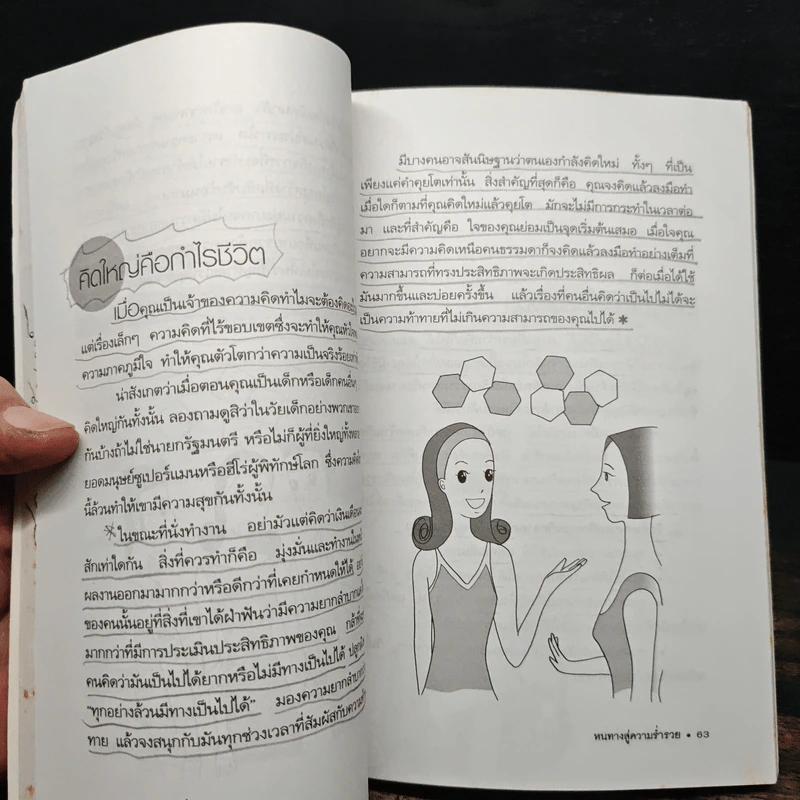 คิดใหญ่คือกำไรชีวิต
เมื่อคุณเป็นเจ้าของความคิดทำไมจะต้องคิด
แต่เรื่องเล็กๆ ความคิดที่ไร้ขอบเขตซึ่งจะทำให้คุณ
ความภาคภูมิใจ ทำให้คุณตัวโตกว่าความเป็นจริง
น่าสังเกตว่าเมื่อตอนคุณเป็นเด็กหรือเด็กคนอื่นๆ
คิดใหญ่กันทั้งนั้น ลองถามดูสิว่าในวัยเด็กอย่างพวกเขา
กันบ้างถ้าไม่ใช่นายกรัฐมนตรี หรือไม่ก็ผู้ที่ยิ่งใหญ่ทั้ง
ยอดมนุษย์ซูเปอร์แมนหรือฮีโร่ผู้พิทักษ์โลก ซึ่งความคิด
นี้ล้วนทำให้เขามีความสุขกันทั้งนั้น
*ในขณะที่นั่งทำงาน อย่ามัวแต่คิดว่าเงินเดือน
สักเท่าใดกัน สิ่งที่ควรทำก็คือ มุ่งมั่นและทำงาน
ผลงานออกมามากกว่าหรือดีกว่าที่เคยกำหนดให้ได้
ของคนนั้นอยู่ที่สิ่งที่เขาได้ฝ่าฟันว่ามีความยากลำบาก
มากกว่าที่มีการประเมินประสิทธิภาพของคุณ
คนคิดว่ามันเป็นไปได้ยากหรือไม่มีทางเป็นไปได้
"ทุกอย่างล้วนมีทางเป็นไปได้" มองความยากลำบาก
ทาย แล้วจงสนุกกับมันทุกช่วงเวลาที่สัมผัสกับความ
มีบางคนอาจสันนิษฐานว่าตนเองกำลังคิดใหม่ ทั้งๆ ที่เป็น
เพียงแค่คำคุยโตเท่านั้น สิ่งสำคัญที่สุดก็คือ คุณจงคิดแล้วลงมือทำ
เมื่อใดก็ตามที่คุณคิดใหม่แล้วคุยโต มักจะไม่มีการกระทำในเวลาต่อ
มา และที่สำคัญคือ ใจของคุณย่อมเป็นจุดเริ่มต้นเสมอ เมื่อใจคุณ
อยากจะมีความคิดเหนือคนธรรมดาก็จงคิดแล้วลงมือทำอย่างเต็มที่
ความสามารถที่ทรงประสิทธิภาพจะเกิดประสิทธิผล ก็ต่อเมื่อได้ใช้
มันมากขึ้นและบ่อยครั้งขึ้น แล้วเรื่องที่คนอื่นคิดว่าเป็นไปไม่ได้จะ
เป็นความท้าทายที่ไม่เกินความสามารถของคุณไปได้ *
หนทางสู่ความร่ำรวย • 63